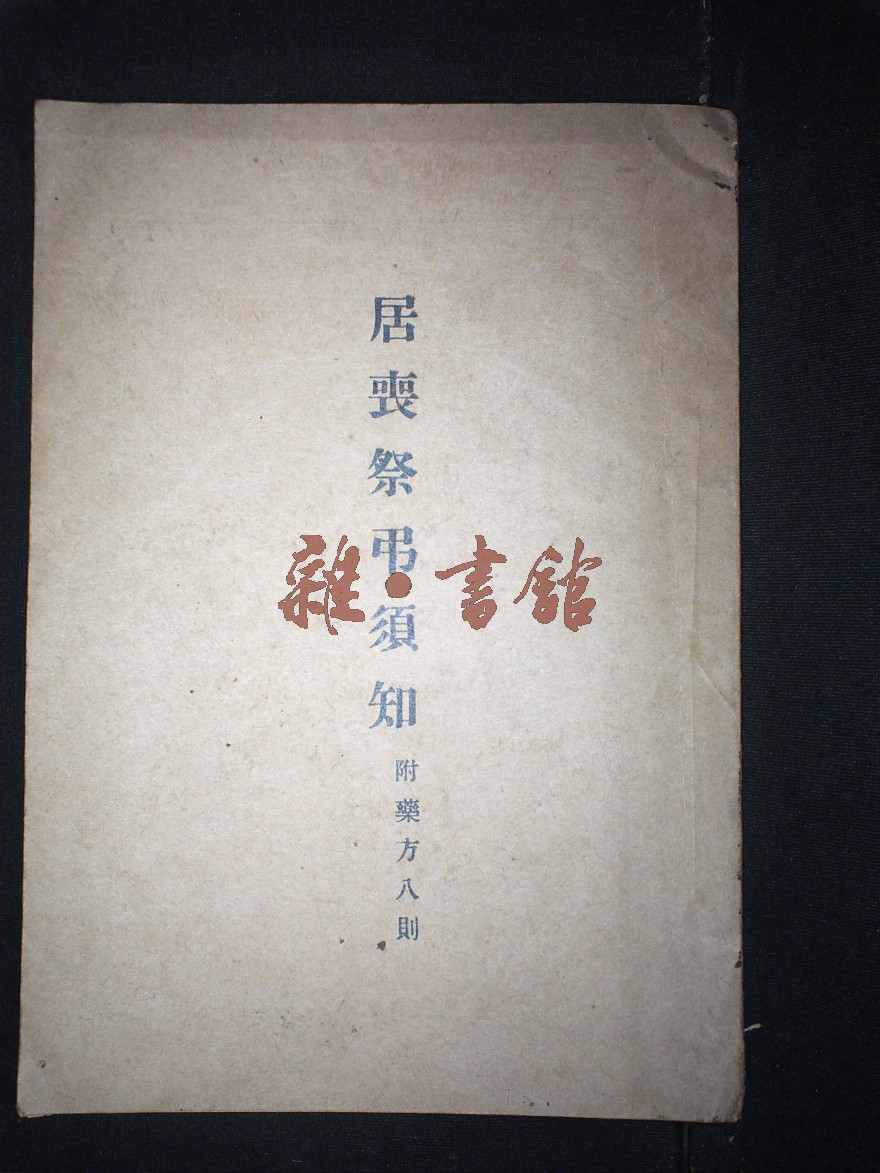 居喪祭弔須知
附藥方八則
雜·書館